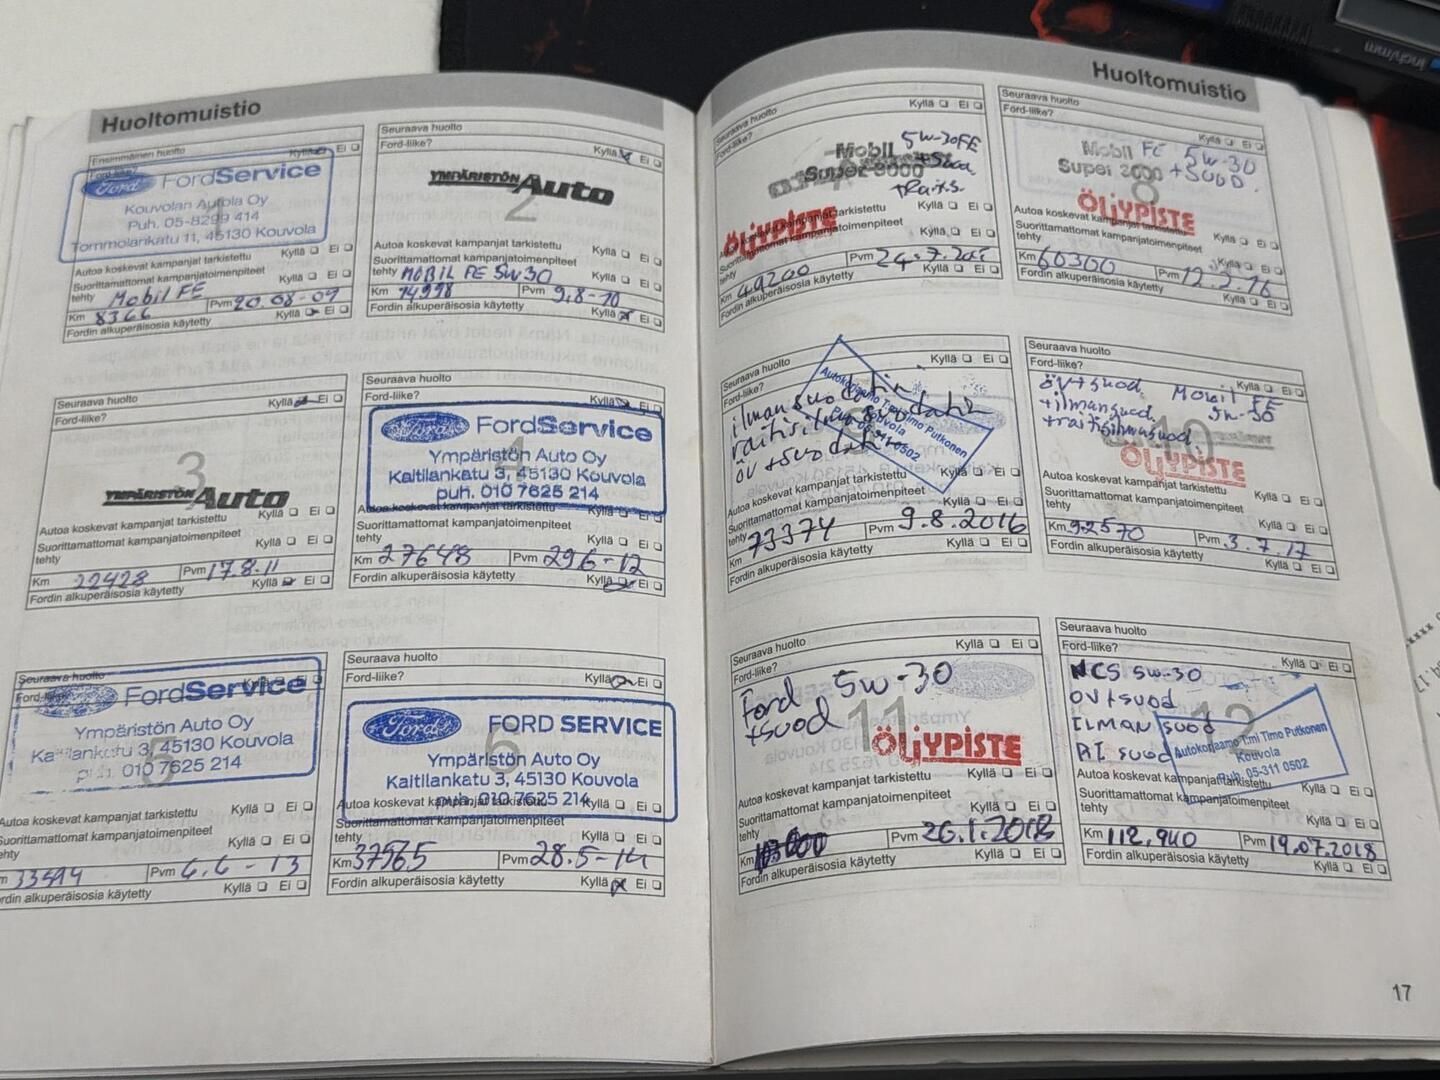 Huoltomuistio
Ensimmäinen huolto
Ford-liike?
Kyllä Ei
Ford FordService
Kouvolan Autola Oy
Puh. 05-8299 414
Tommolankatu 11, 45130 Kouvola
Autoa koskevat kampanjat tarkistettu Kyllä Ei
Suorittamattomat kampanjatoimenpiteet
tehty Mobil FE Kyllä Ei
Km 8366 Pvm 20.08-09
Fordin alkuperäisosia käytetty Kyllä Ei
Seuraava huolto
Ford-liike? Kyllä Ei
YMPÄRISTÖN Auto
2
Autoa koskevat kampanjat tarkistettu Kyllä Ei
Suorittamattomat kampanjatoimenpiteet
tehty MOBIL FE 5W30 Kyllä Ei
Km 14998 Pvm 9.8-10
Fordin alkuperäisosia käytetty Kyllä Ei
Seuraava huolto
Ford-liike? Kyllä Ei
3
YMPÄRISTÖN Auto
Autoa koskevat kampanjat tarkistettu Kyllä Ei
Suorittamattomat kampanjatoimenpiteet
tehty Kyllä Ei
Km 22428 Pvm 17.8.11
Fordin alkuperäisosia käytetty Kyllä Ei
Seuraava huolto
Ford-liike? Kyllä Ei
Ford FordService
4
Ympäristön Auto Oy
Kaitilankatu 3, 45130 Kouvola
puh. 010 7625 214
Autoa koskevat kampanjat tarkistettu Kyllä Ei
Suorittamattomat kampanjatoimenpiteet
tehty Kyllä Ei
Km 27648 Pvm 296-12
Fordin alkuperäisosia käytetty Kyllä Ei
Seuraava huolto
Ford-liike? Kyllä Ei
FordService
Ympäristön Auto Oy
Kaitilankatu 3, 45130 Kouvola
5
puh. 010 7625 214
Autoa koskevat kampanjat tarkistettu Kyllä Ei
Suorittamattomat kampanjatoimenpiteet
tehty Kyllä Ei
33594 Pvm 6.6-13
Fordin alkuperäisosia käytetty Kyllä Ei
Seuraava huolto
Ford-liike? Kyllä Ei
Ford FORD SERVICE
6
Ympäristön Auto Oy
Kaitilankatu 3, 45130 Kouvola
puh. 010 7625 214
Autoa koskevat kampanjat tarkistettu Kyllä Ei
Suorittamattomat kampanjatoimenpiteet
tehty Kyllä Ei
Km 37565 Pvm 28.5-14
Fordin alkuperäisosia käytetty Kyllä Ei
Huoltomuistio
Seuraava huolto
Ford-liike? Kyllä Ei
Mobil 5W-30FE
Super 3000 +Suod.
+Raitis.
ÖLJYPISTE
Autoa koskevat kampanjat tarkistettu Kyllä Ei
Suorittamattomat kampanjatoimenpiteet
tehty Kyllä Ei
Km 49200 Pvm 24.7.2015
Fordin alkuperäisosia käytetty Kyllä Ei
Seuraava huolto
Ford-liike? Kyllä Ei
Mobil FE 5W-30
Super 2000 +SUOD.
8
ÖLJYPISTE
Autoa koskevat kampanjat tarkistettu Kyllä Ei
Suorittamattomat kampanjatoimenpiteet
tehty Kyllä Ei
Km 60300 Pvm 12.2.16
Fordin alkuperäisosia käytetty Kyllä Ei
Seuraava huolto
Ford-liike? Kyllä Ei
ilmansuodatin
raitis.ilmasuodatin
öv+suodatin
Autokorjaamo T:mi Timo Putkonen
Kouvola
Puh. 05-311 0502
Autoa koskevat kampanjat tarkistettu Kyllä Ei
Suorittamattomat kampanjatoimenpiteet
tehty Kyllä Ei
Km 73374 Pvm 9.8.2016
Fordin alkuperäisosia käytetty Kyllä Ei
Seuraava huolto
Ford-liike? Kyllä Ei
öv+suod Mobil FE
+ilmansuod 5W-30
+raitisilmasuod
10
ÖLJYPISTE
Autoa koskevat kampanjat tarkistettu Kyllä Ei
Suorittamattomat kampanjatoimenpiteet
tehty Kyllä Ei
Km 92570 Pvm 3.7.17
Fordin alkuperäisosia käytetty Kyllä Ei
Seuraava huolto
Ford-liike? Kyllä Ei
Ford 5W-30
+suod
11
ÖLJYPISTE
Autoa koskevat kampanjat tarkistettu Kyllä Ei
Suorittamattomat kampanjatoimenpiteet
tehty Kyllä Ei
Km Pvm 26.1.2018
Fordin alkuperäisosia käytetty Kyllä Ei
Seuraava huolto
Ford-liike? Kyllä Ei
NCS 5W-30
ÖV+suod
ILMAN suod
RI suod
12
Autokorjaamo T:mi Timo Putkonen
Kouvola
Puh. 05-311 0502
Autoa koskevat kampanjat tarkistettu Kyllä Ei
Suorittamattomat kampanjatoimenpiteet
tehty Kyllä Ei
Km 112,940 Pvm 19.07.2018
Fordin alkuperäisosia käytetty Kyllä Ei
17
inch/mm